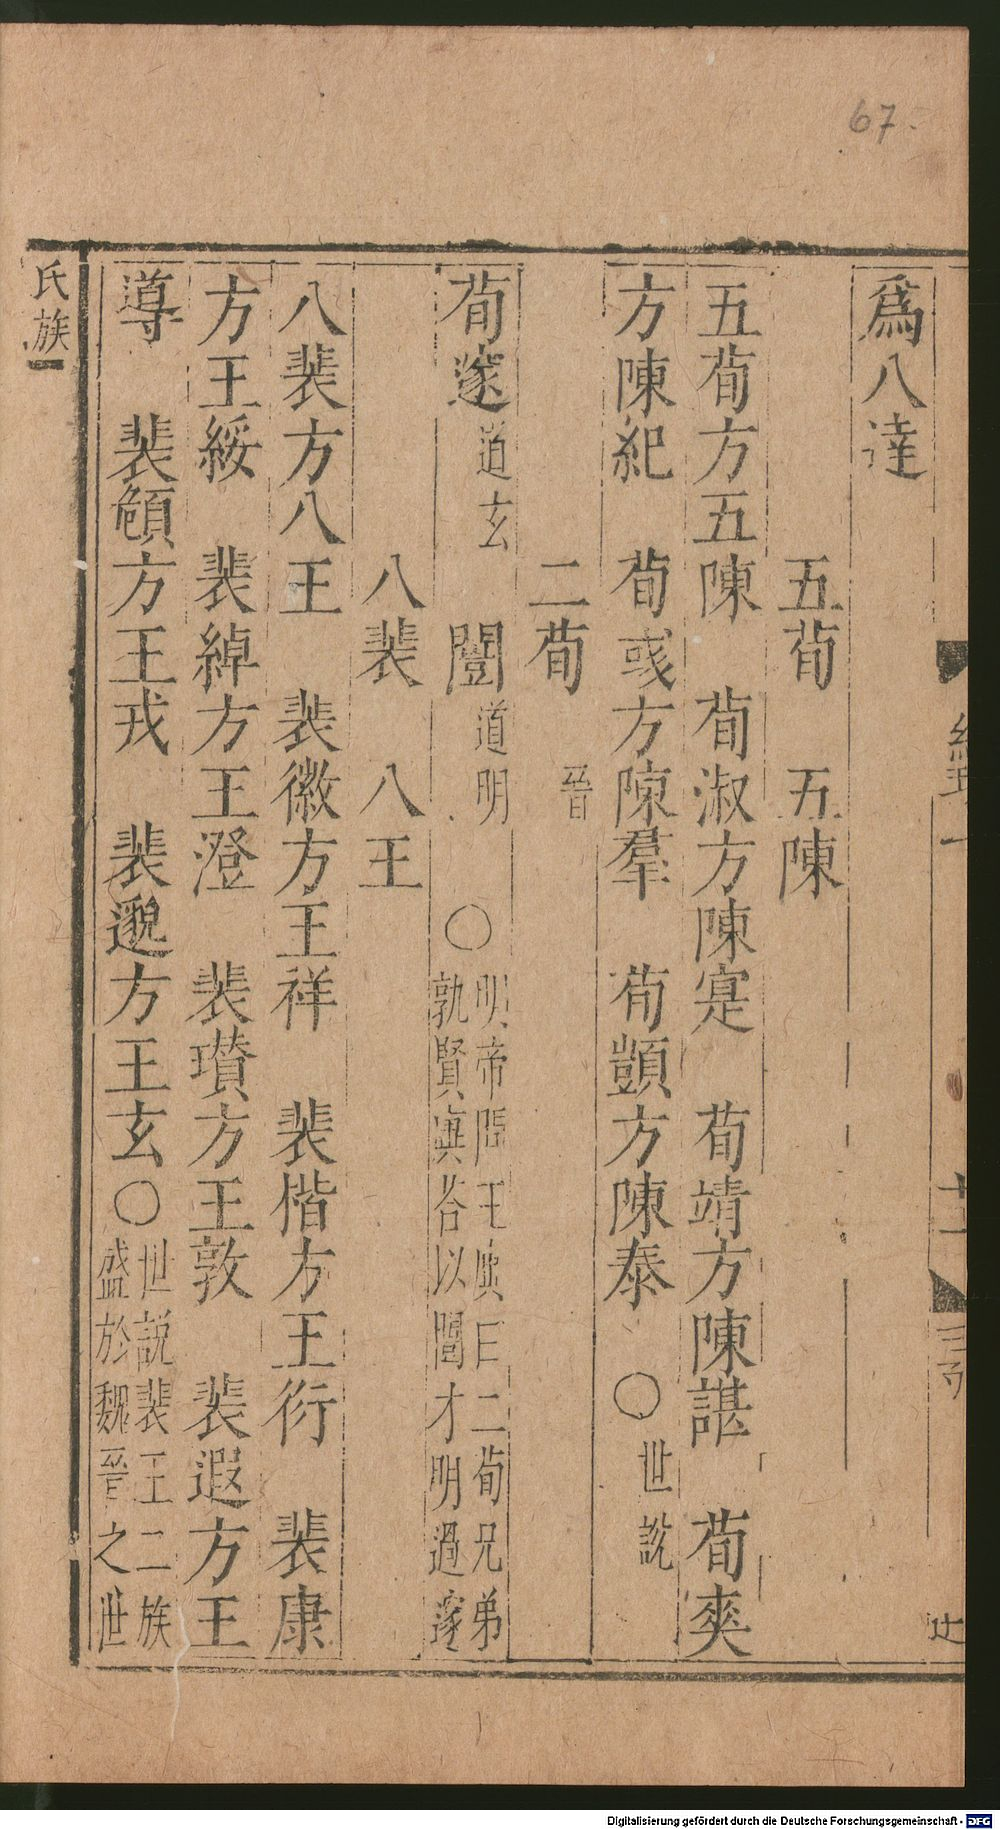 67.
爲八達
五荀　五陳
五荀方五陳　荀淑方陳寔　荀靖方陳諶　荀爽
方陳紀　荀彧方陳羣　荀顗方陳泰　〇世說
二荀　晉
荀邃道玄　闓道明　〇明帝問王廙曰二荀兄弟
孰賢廙荅以闓才明過邃
八裴　八王
八裴方八王　裴徽方王祥　裴楷方王衍　裴康
方王綏　裴綽方王澄　裴瓚方王敦　裴遐方王
導　裴頠方王戎　裴邈方王玄〇世說裴王二族
盛於魏晉之世
氏族
Digitalisierung gefördert durch die Deutsche Forschungsgemeinschaft - DFG